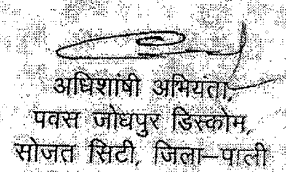 अधिशांषी अभियंता,
पवस जोधपुर डिस्कोम,
सोजत सिटी, जिला–पाली